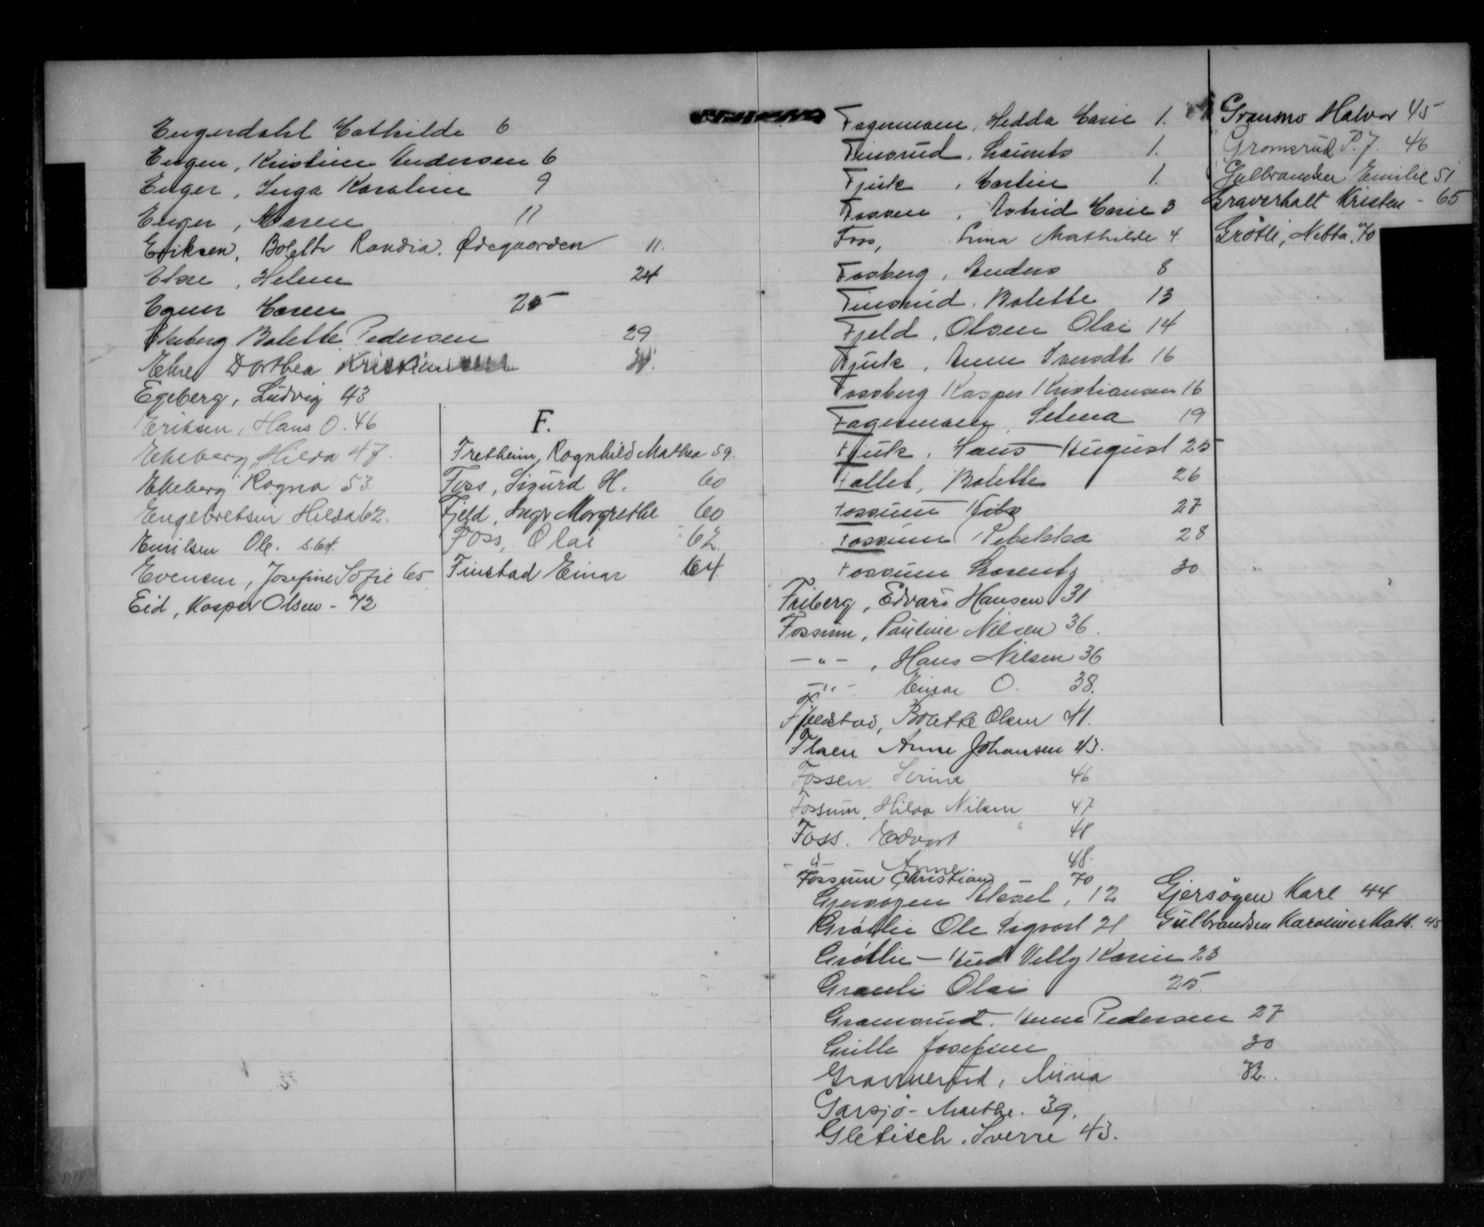 Engerdahl Mathilde 6
Engen, Kristine Andersen 6
Enger, Inga Karoline 9
Enger, Maren 11
Eriksen, Bolette Randia. Ødegaarden 11.
Else, Helene 24
Egner Maren 25
Ekeberg Bolette Pedersen 29
Ekre Dorthea
Egeberg, Ludvig 43
Eriksen, Hans O. 46
Ekeberg, Hilda 47
Ekeberg Ragna 53.
Engebretsen Hilda 62.
Emilsen Ole. s. 64.
Evensen, Josefine Sofie 65
Eid, Kasper Olsen - 72
F.
Fretheim, Ragnhild Mathea 59.
Foss, Sigurd H. 60
Fjeld, Inga Margrethe 60
Foss, Olai 62
Finstad Einar 64
Fagermoen, Hedda Marie 1.
Finsrud, Laurits 1.
Fjuk, Martin 1.
Fossen, Astrid Marie 3
Foss, Lina Mathilde 4
Fosberg, Anders 8
Finsrud. Bolette 13
Fjeld, Olsen Olai 14
Fjuk, Anne 16
Fossberg Kasper Kristiansen 16
Fagermoen, Selma 19
Fjuk, Hans August 25
Fallet, Bolette 26
Fossum 27
Fossum Rebekka 28
Fossum Lorentz 30
Friberg, Edvard Hansen 31
Fossum, Pauline Nilsen 36.
— " — , Hans Nilsen 36
— " — Einar O. 38.
Fjeldstad, Bolette Olsen 41.
Floen Anne Johansen 43.
Fossen, Serine 46
Fossum, Hilda Nilsen 47
Foss. Edvart 48
- " - Anne 48.
Fossum Christian 70
Gjersøgen Aksel, 12
Grøtlie Ole Sigvart 21
Grøtlie — Aud Velly Karin 23
Granli Olai 25.
Gramsrud, Anne Pedersen 27
Grille Josefine 30
Gravnerød, Anna 32.
Garsjø - Marthe. 39.
Gletisch, Sverre 43.
Gjersøgen Karl 44
Gulbrandsen Karoline Math. 45
Gransmo Halvor 45
Gromsrud P. J. 46
Gulbrandsen Emilie 51
Graverholt Kristen - 65
Grøtli, Netta, 70